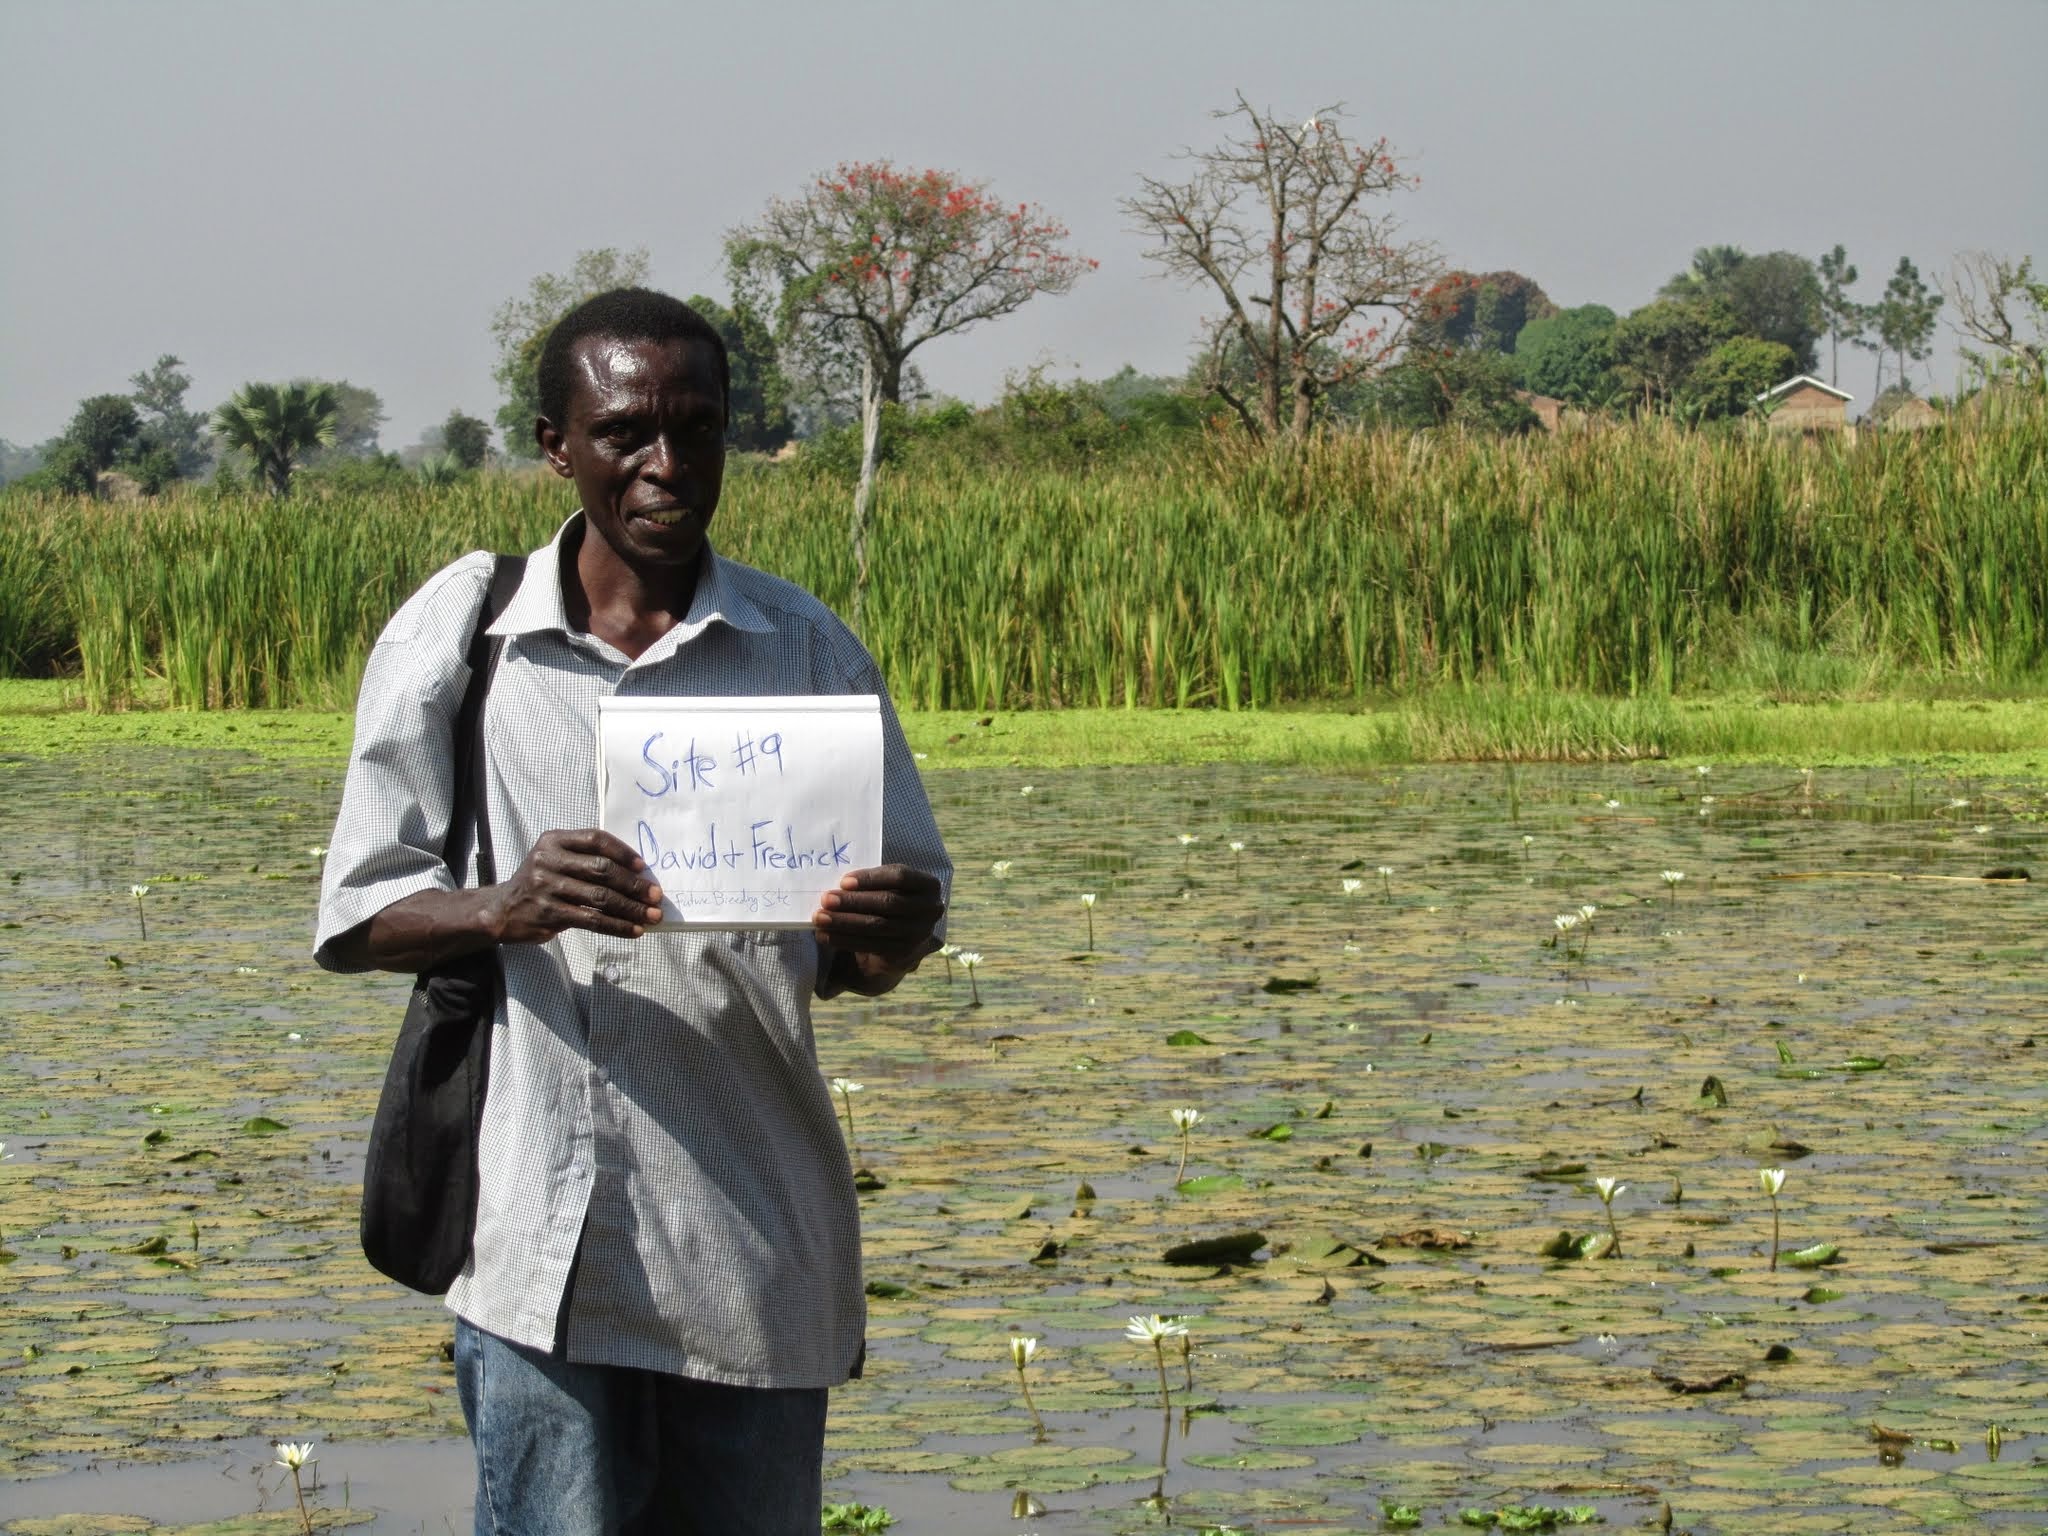 Site #9
David + Fredrick
Future Breeding Site